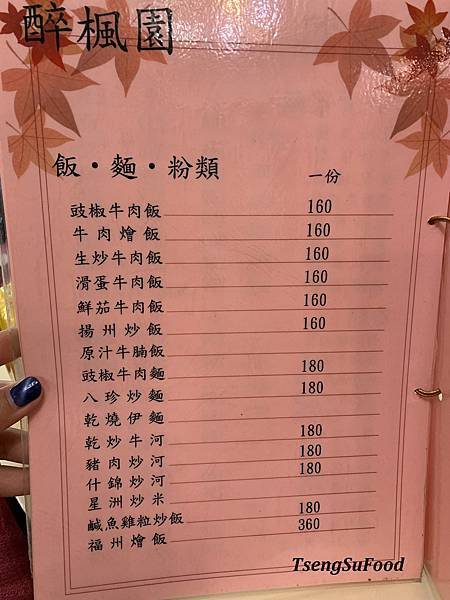 醉楓園
飯・麵・粉類 一份
豉椒牛肉飯 160
牛肉燴飯 160
生炒牛肉飯 160
滑蛋牛肉飯 160
鮮茄牛肉飯 160
揚州炒飯 160
原汁牛腩飯
豉椒牛肉麵 180
八珍炒麵 180
乾燒伊麵
乾炒牛河 180
豬肉炒河 180
什錦炒河 180
星洲炒米
鹹魚雞粒炒飯 180
福州燴飯 360
TsengSuFood